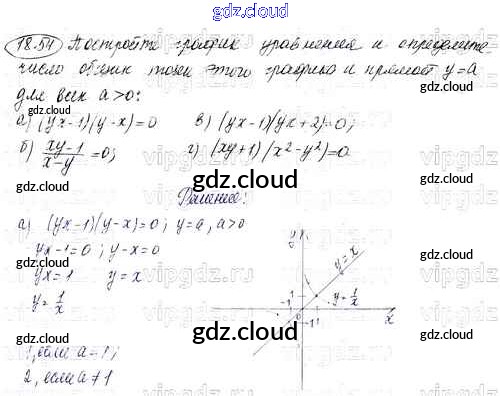 gdz.cloud
18.54 Постройте график уравнения и определите
число общих точек этого графика и прямой y=a
для всех a>0:
а) (yx-1)(y-x)=0 в) (yx-1)(yx+2)=0;
б) xy-1/x-y =0; г) (xy+1)(x²-y²)=0
Решение:
а) (yx-1)(y-x)=0; y=a, a>0
yx-1=0; y-x=0
yx=1 y=x
y=1/x
1, если a=1;
2, если a≠1
y
y=x
1
-1
y=1/x
0
-1 1
x
gdz.cloud
gdz.cloud
gdz.cloud
gdz.cloud
gdz.cloud
gdz.cloud
gdz.cloud
gdz.cloud
gdz.cloud